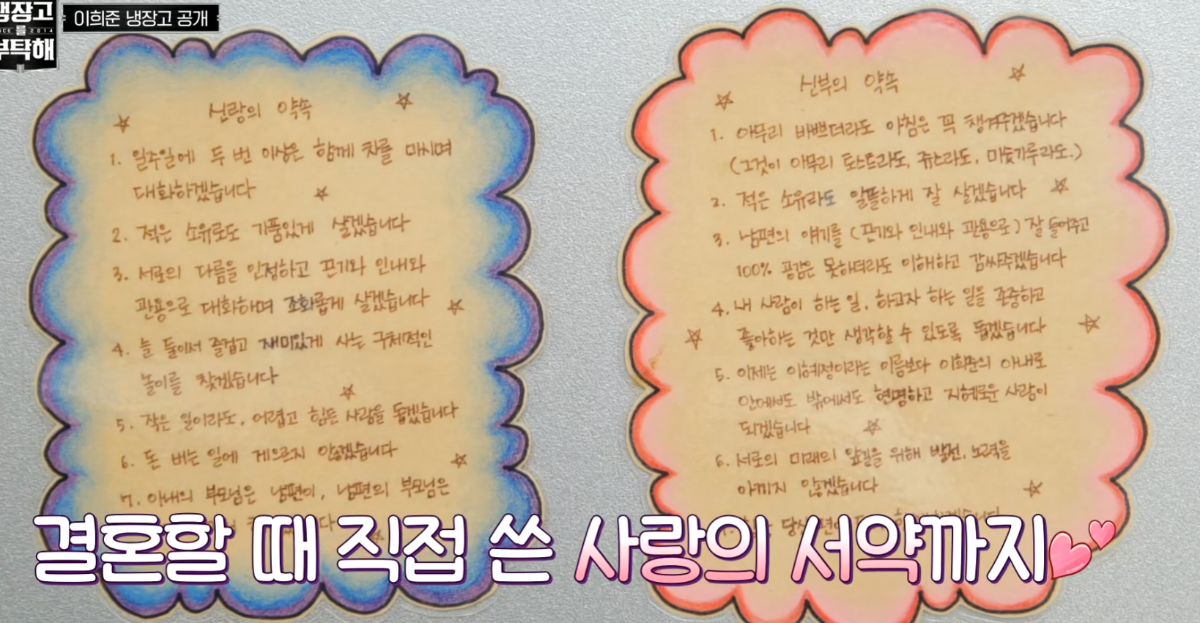 냉장고를
SINCE 2014
부탁해
이희준 냉장고 공개
신랑의 약속
1. 일주일에 두 번 이상은 함께 차를 마시며
대화하겠습니다
2. 적은 소유로도 기품있게 살겠습니다
3. 서로의 다름을 인정하고 끈기와 인내와
관용으로 대화하며 조화롭게 살겠습니다
4. 늘 둘이서 즐겁고 재미있게 사는 구체적인
놀이를 찾겠습니다
5. 작은 일이라도, 어렵고 힘든 사람을 돕겠습니다
6. 돈 버는 일에 게으르지 않겠습니다
7. 아내의 부모님은 남편이, 남편의 부모님은
신부의 약속
1. 아무리 바쁘더라도 아침은 꼭 챙겨주겠습니다
(그것이 아무리 토스트라도, 쥬스라도, 미숫가루라도.)
2. 적은 소유라도 알뜰하게 잘 살겠습니다
3. 남편의 얘기를 (끈기와 인내와 관용으로) 잘 들어주고
100% 공감은 못하더라도 이해하고 감싸주겠습니다
4. 내 사람이 하는 일, 하고자 하는 일을 존중하고
좋아하는 것만 생각할 수 있도록 돕겠습니다
5. 이제는 이혜정이라는 이름보다 이희준의 아내로
안에서도 밖에서도 현명하고 지혜로운 사람이
되겠습니다
6. 서로의 미래의 앞길을 위해 발전, 노력을
아끼지 않겠습니다
결혼할 때 직접 쓴 사랑의 서약까지